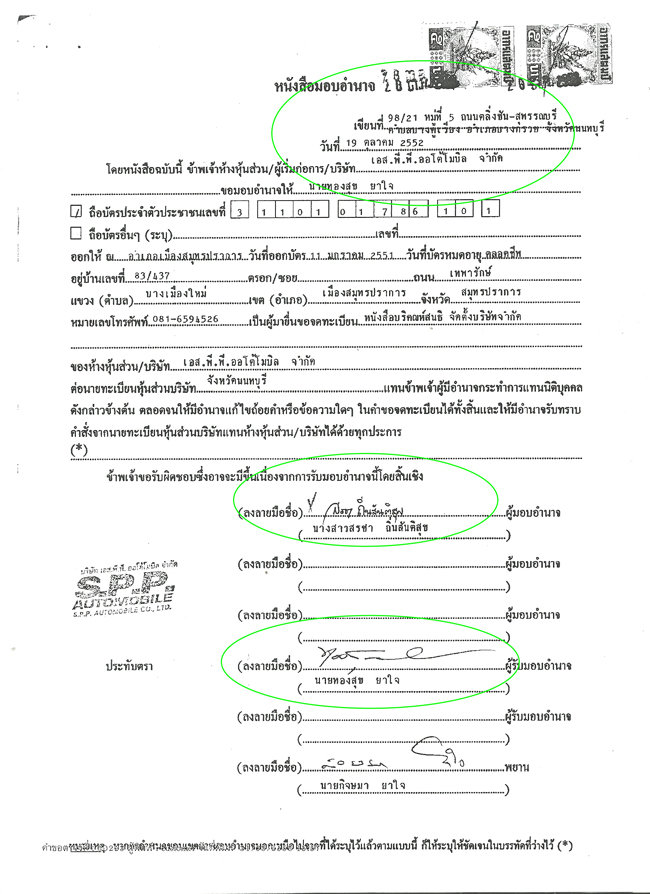 หนังสือมอบอำนาจ
เขียนที่ 98/21 หมู่ที่ 5 ถนนตลิ่งชัน-สุพรรณบุรี
ตำบลบางคูเวียง อำเภอบางกรวย จังหวัดนนทบุรี
วันที่ 19 ตุลาคม 2552
โดยหนังสือฉบับนี้ ข้าพเจ้าห้างหุ้นส่วน/ผู้เริ่มก่อการ/บริษัท เอส.พี.พี.ออโต้โมบิล จำกัด
ขอมอบอำนาจให้ นายทองสุข ยาใจ
ถือบัตรประจำตัวประชาชนเลขที่ 3 1101 01786 10 1
ถือบัตรอื่นๆ (ระบุ) เลขที่
ออกให้ ณ อำเภอเมืองสมุทรปราการ วันที่ออกบัตร 11 มกราคม 2551 วันที่บัตรหมดอายุ ตลอดชีพ
อยู่บ้านเลขที่ 83/437 ตรอก/ซอย ถนน เทพารักษ์
แขวง (ตำบล) บางเมืองใหม่ เขต (อำเภอ) เมืองสมุทรปราการ จังหวัด สมุทรปราการ
หมายเลขโทรศัพท์ 081-6594526 เป็นผู้มายื่นขอจดทะเบียน หนังสือบริคณห์สนธิ จัดตั้งบริษัทจำกัด
ของห้างหุ้นส่วน/บริษัท เอส.พี.พี.ออโต้โมบิล จำกัด
ต่อนายทะเบียนหุ้นส่วนบริษัท จังหวัดนนทบุรี แทนข้าพเจ้าผู้มีอำนาจกระทำการแทนนิติบุคคล
ดังกล่าวข้างต้น ตลอดจนให้มีอำนาจแก้ไขถ้อยคำหรือข้อความใดๆ ในคำขอจดทะเบียนได้ทั้งสิ้นและให้มีอำนาจรับทราบ
คำสั่งจากนายทะเบียนหุ้นส่วนบริษัทแทนห้างหุ้นส่วน/บริษัทได้ด้วยทุกประการ
(*)
ข้าพเจ้าขอรับผิดชอบซึ่งอาจจะมีขึ้นเนื่องจากการรับมอบอำนาจนี้โดยสิ้นเชิง
(ลงลายมือชื่อ) ผู้มอบอำนาจ
( นางสาวสรชา ถิ่นสันติสุข )
(ลงลายมือชื่อ) ผู้มอบอำนาจ
( )
บริษัท เอส.พี.พี. ออโต้โมบิล จำกัด
S.P.P.
AUTOMOBILE
S.P.P. AUTOMOBILE CO., LTD.
(ลงลายมือชื่อ) ผู้มอบอำนาจ
( )
ประทับตรา (ลงลายมือชื่อ) ผู้รับมอบอำนาจ
( นายทองสุข ยาใจ )
(ลงลายมือชื่อ) ผู้รับมอบอำนาจ
( )
(ลงลายมือชื่อ) พยาน
( นายกิจษมา ยาใจ )
ให้ระบุไว้แล้วตามแบบนี้ ก็ให้ระบุให้ชัดเจนในบรรทัดที่ว่างไว้ (*)